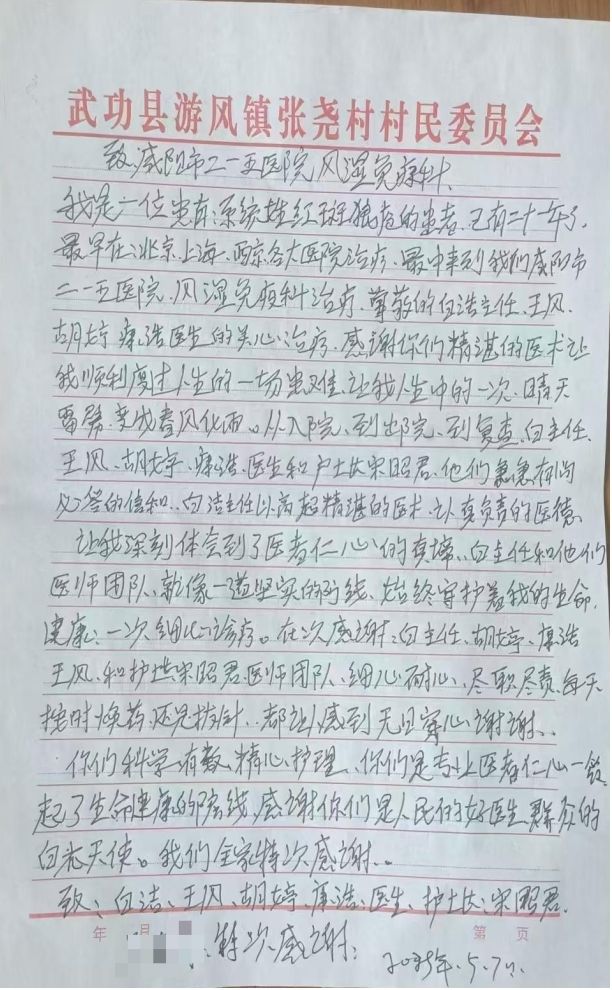 武功县游风镇张尧村村民委员会
致咸阳市二一五医院风湿免疫科
我是一位患有系统性红斑狼疮的患者、已有二十一年了、
最早在北京、上海、西京各大医院治疗、最中来到我们咸阳市
二一五医院、风湿免疫科治疗、尊敬的白洁主任、王风、
胡婷、康浩医生的关心治疗、感谢你们精湛的医术让
我顺利度过人生的一场患难、让我人生中的一次、晴天
霹雳、变成春风化雨。从入院、到出院、到复查、白主任、
王风、胡婷、康浩、医生和护士长宋昭君、他们兼急有问
必答的信和、白洁主任以高超精湛的医术、认真负责的医德、
让我深刻体会到了医者仁心的真谛、白主任和他们
医师团队、就像一道坚实的防线、始终守护着我的生命、
健康、一次细心诊疗。在次感谢、白主任、胡婷、康浩
王风、和护士长宋昭君、医师团队、细心、耐心、尽职、尽责、每天
按时换药、还是拔针、都让感到无比穿心、谢谢、
你们科学有数、精心护理、你们是专业医者仁心一
起了生命健康的防线、感谢你们是人民的好医生、群众的
白衣天使。我们全家特次感谢、
致、白洁、王风、胡婷、康浩、医生、护士长、宋昭君、
年 月 第 页
特次感谢、
2025年.5.7